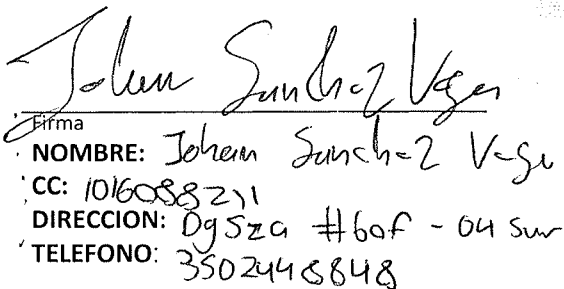 Johan Sanchez Vega
Firma
NOMBRE: Johan Sanchez Vega
CC: 1016088211
DIRECCION: Dg 52a #60f - 04 Sur
TELEFONO: 3502448848